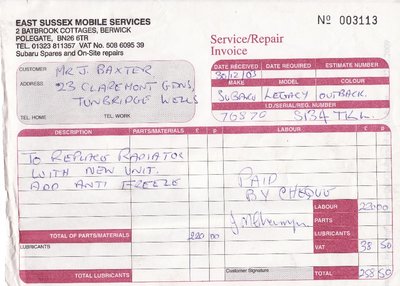 EAST SUSSEX MOBILE SERVICES
2 BATBROOK COTTAGES, BERWICK
POLEGATE, BN26 6TR
TEL. 01323 811357 VAT No. 508 6095 39
Subaru Spares and On-Site repairs
Nº 003113
Service/Repair
Invoice
CUSTOMER MR J. BAXTER
ADDRESS 23 CLAREMONT GDNS,
TUNBRIDGE WELLS
TEL HOME TEL WORK
DATE RECEIVED DATE REQUIRED ESTIMATE NUMBER
30/12/03
MAKE MODEL COLOUR
SUBARU LEGACY OUTBACK.
I.D./SERIAL/REG. NUMBER
76870 S134 TKL.
DESCRIPTION PARTS/MATERIALS £ p LABOUR £ p
TO REPLACE RADIATOR
WITH NEW UNIT.
ADD ANTI FREEZE
PAID
BY CHEQUE
LABOUR
PARTS
TOTAL OF PARTS/MATERIALS 220 00
LUBRICANTS
LUBRICANTS
VAT 38 50
TOTAL LUBRICANTS
Customer Signature
TOTAL 258 50